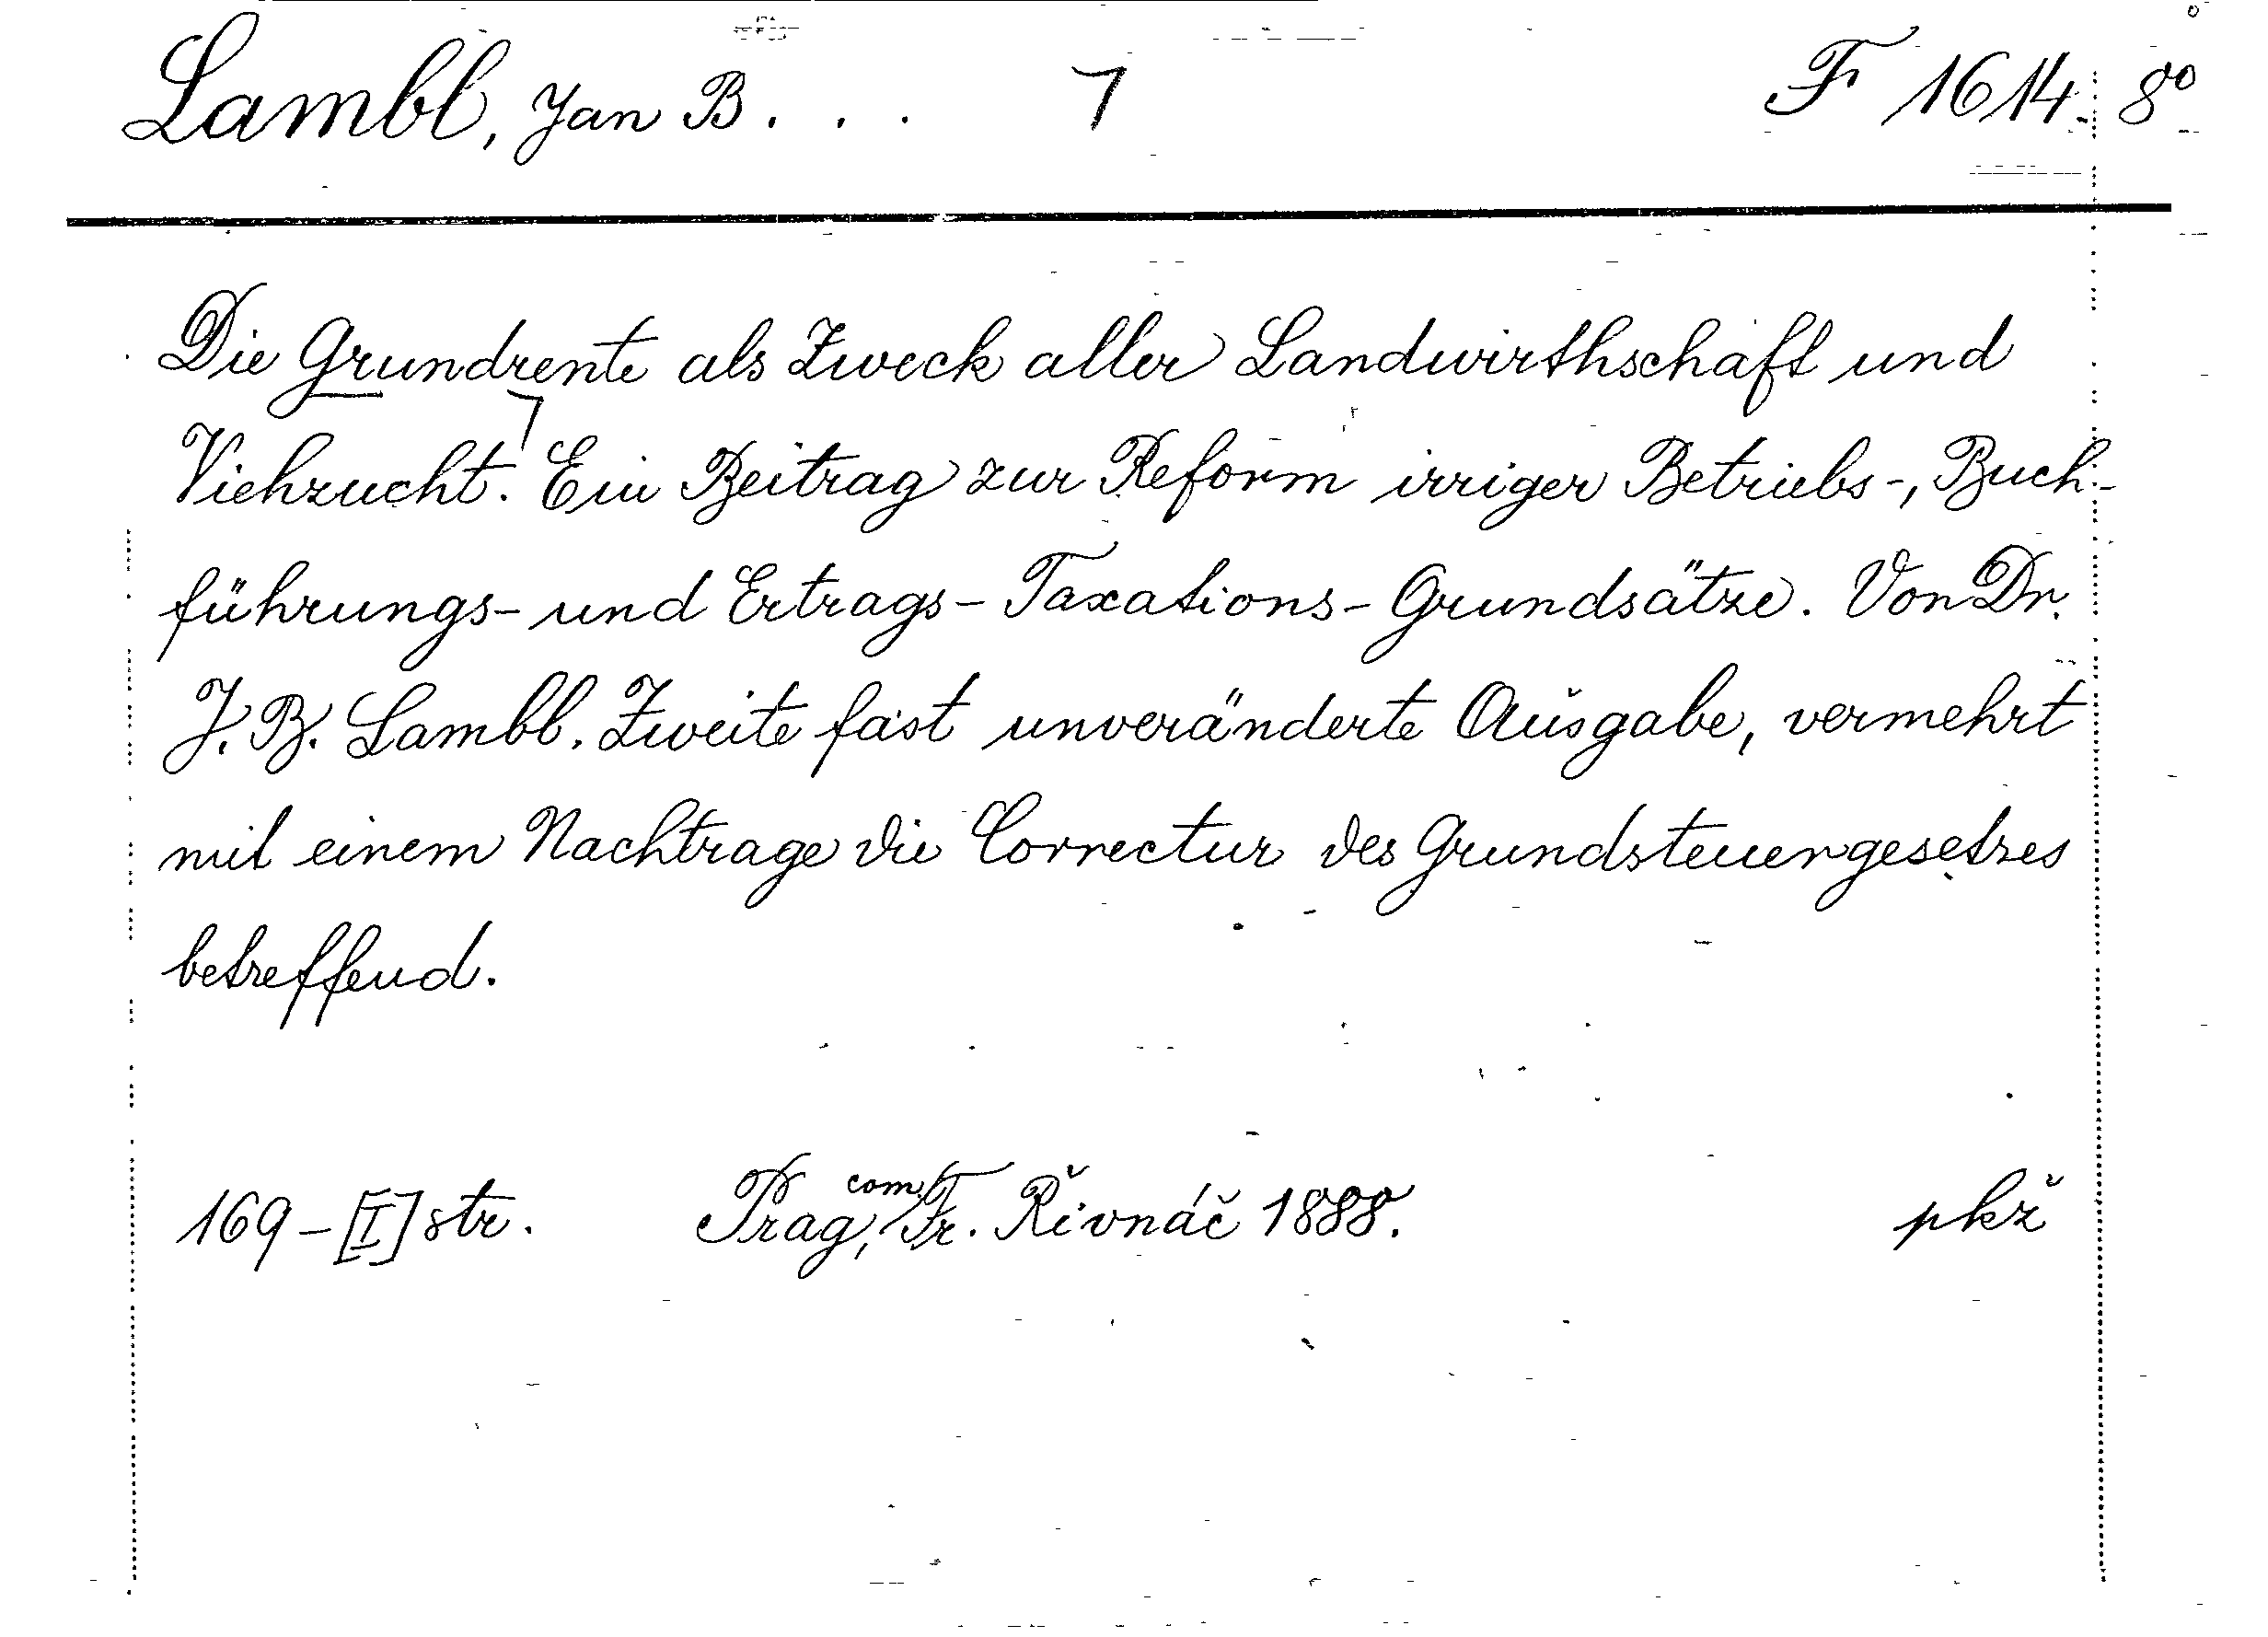 Lambl, Jan B. . . 7 F 1614. 8°
Die Grundrente als Zweck aller Landwirthschaft und
Viehzucht. Ein Beitrag zur Reform irriger Betriebs-, Buch-
führungs- und Ertrags-Taxations-Grundsätze. Von Dr.
J. B. Lambl. Zweite fast unveränderte Ausgabe, vermehrt
mit einem Nachtrage die Correctur des Grundsteuergesetzes
betreffend.
169-[I] str. Prag, com. Fr. Řivnáč 1888. pkž